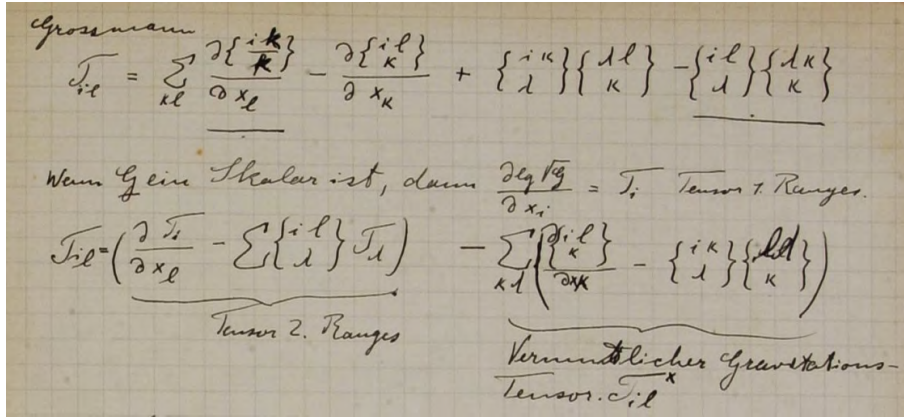 Grossmann
T_{il} = \sum_{\kappa l} \frac{\partial \{ {i k \atop k} \}}{\partial x_l} - \frac{\partial \{ {i l \atop \kappa} \}}{\partial x_\kappa} + \{ {i \kappa \atop \lambda} \} \{ {\lambda l \atop \kappa} \} - \{ {i l \atop \lambda} \} \{ {\lambda \kappa \atop \kappa} \}
Wenn G ein Skalar ist, dann \frac{\partial lg \sqrt{G}}{\partial x_i} = T_i Tensor 1. Ranges.
T_{il} = ( \frac{\partial T_i}{\partial x_l} - \sum \{ {i l \atop \lambda} \} T_\lambda ) - \sum_{\kappa \lambda} ( \frac{\partial \{ {i l \atop \kappa} \}}{\partial x_\kappa} - \{ {i \kappa \atop \lambda} \} \{ {\lambda l \atop \kappa} \} )
Tensor 2. Ranges
Vermutlicher Gravitations-
Tensor. T_{il}^x